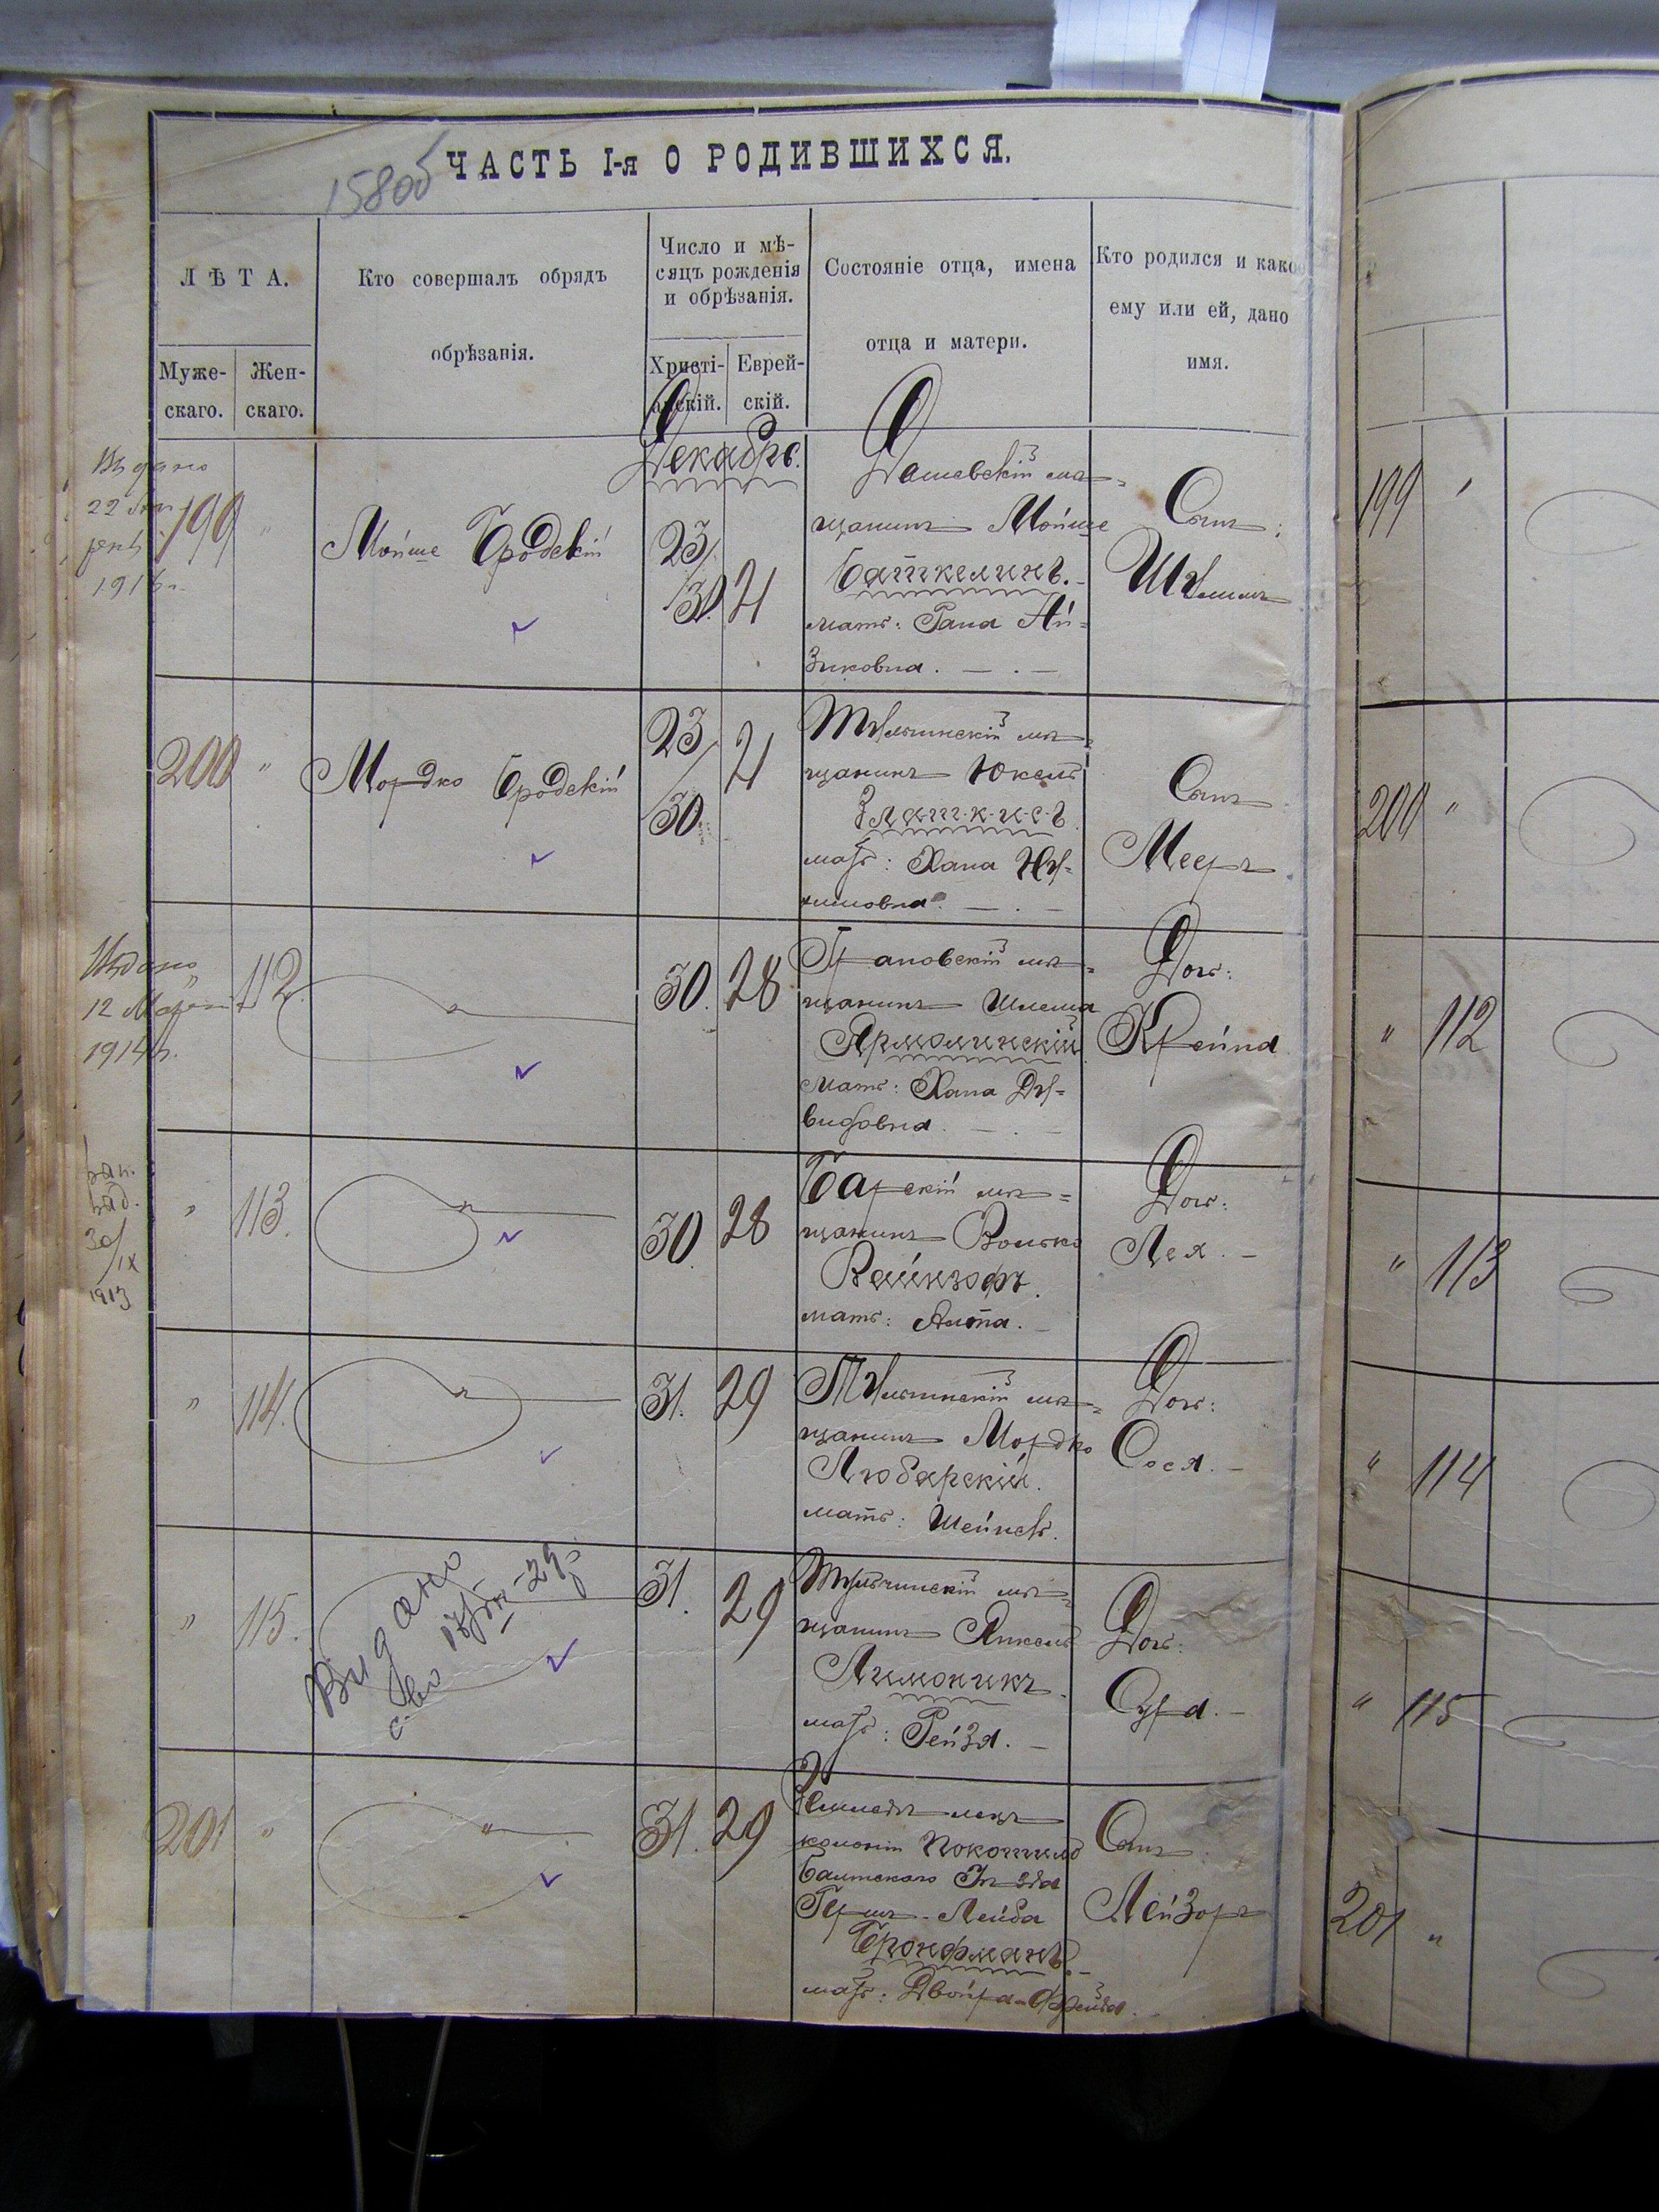 158об
ЧАСТЬ I-я О РОДИВШИХСЯ.
ЛѢТА.
Муже-
скаго.
Жен-
скаго.
Кто совершалъ обрядъ
обрѣзанія.
Число и мѣ-
сяцъ рожденія
и обрѣзанія.
Христі-
анскій.
Еврей-
скій.
Состояніе отца, имена
отца и матери.
Кто родился и какое
ему или ей, дано
имя.
Декабрь.
Выдано
22
1916 г.
199 "
Мойше Бродскій
23/
30. 21
Дашевскій мѣ-
щанинъ Мойше
Баткелинъ.
мать: Рана Ай-
зиковна.
Сынъ:
200 "
Мордко Бродскій
23/
30. 21
Тульчинскій мѣ-
щанинъ Юкель
Златкисъ
мать: Хана Ну-
химовна.
Сынъ
Мееръ
Выдано
12 Марта
1914 г.
" 112.
30. 28
Грановскій мѣ-
щанинъ Шлема
Ярмолинскій
мать: Хана Ду-
видовна.
Дочь:
Крейна
30/IX
1913
" 113.
30. 28
Барскій мѣ-
щанинъ Волько
Вайнзофъ.
мать: Алта.
Дочь:
Лея.
" 114.
31. 29
Тульчинскій мѣ-
щанинъ Мордко
Любарскій.
мать: Шейндль.
Дочь:
Сося.
" 115.
Видано
31. 29
Тульчинскій мѣ-
щанинъ Янкель
Лимоникъ.
мать: Рейзя.
Дочь:
Сура.
201 "
31. 29
Земледѣлецъ
колоніи Покотилово
Балтскаго Уѣзда
Гершъ-Лейба
Бронфманъ.
мать: Двойра-Фрейда.
Сынъ
Лейзоръ
199 "
200 "
" 112
" 113
" 114
" 115
201 "